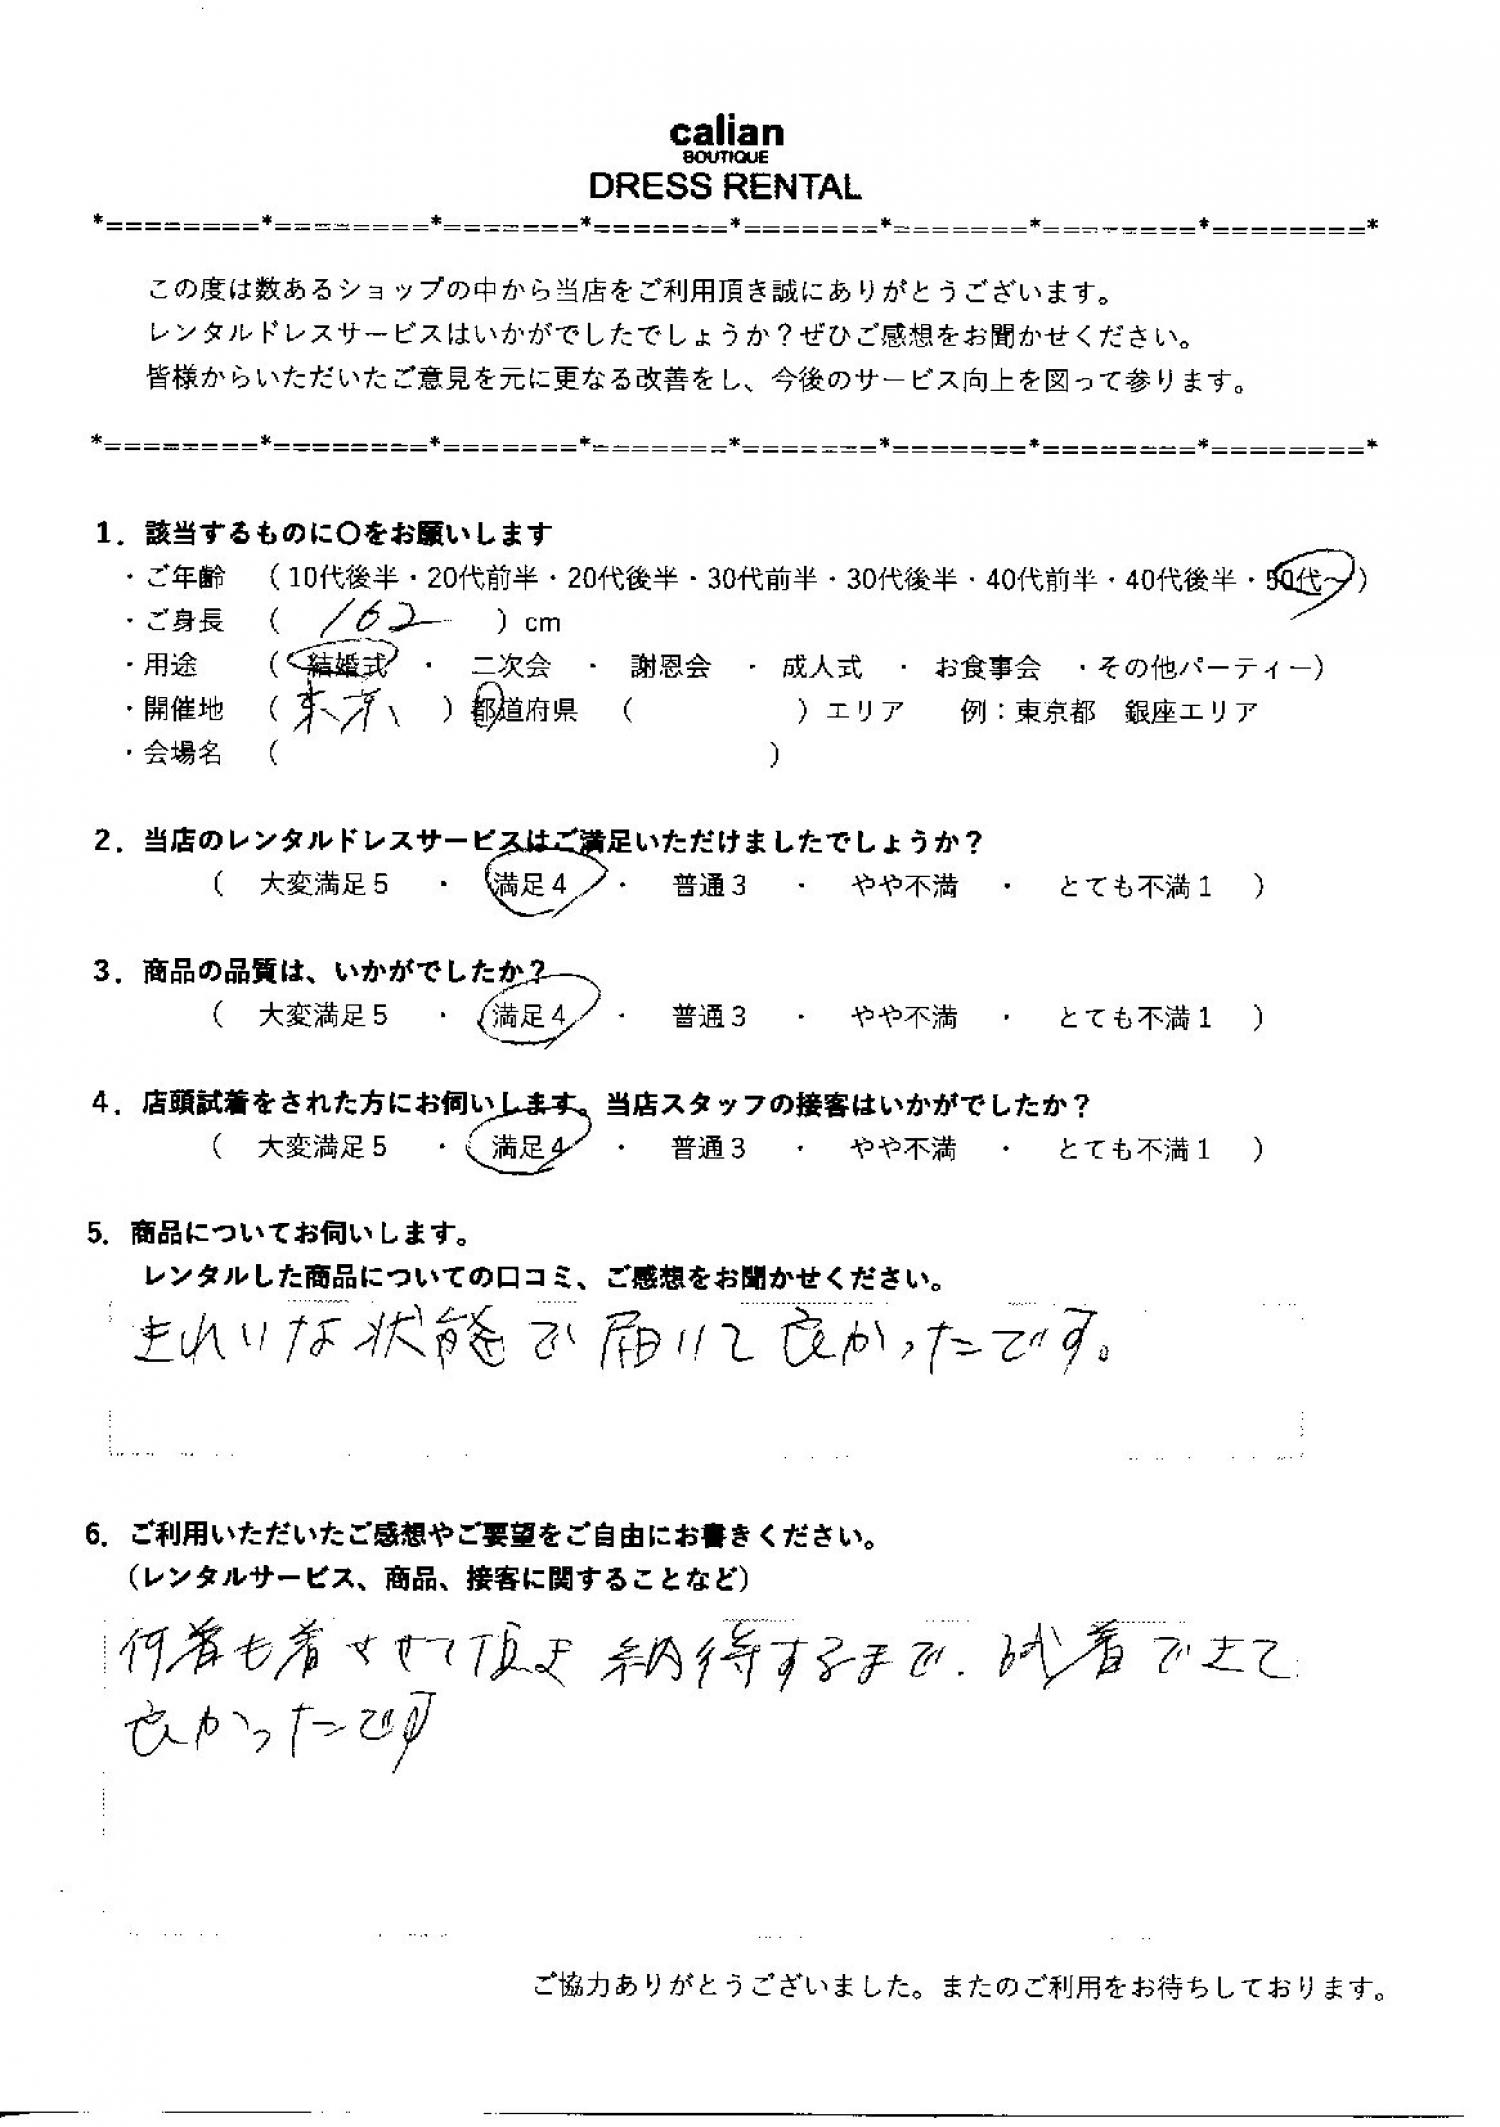 calian
BOUTIQUE
DRESS RENTAL
*========*========*=======*=======*=======*=======*========*========*
この度は数あるショップの中から当店をご利用頂き誠にありがとうございます。
レンタルドレスサービスはいかがでしたでしょうか？ぜひご感想をお聞かせください。
皆様からいただいたご意見を元に更なる改善をし、今後のサービス向上を図って参ります。
*========*========*=======*=======*=======*=======*========*========*
1．該当するものに〇をお願いします
・ご年齢　（10代後半・20代前半・20代後半・30代前半・30代後半・40代前半・40代後半・50代～）
・ご身長　（　162　）cm
・用途　（結婚式　・　二次会　・　謝恩会　・　成人式　・　お食事会　・その他パーティー）
・開催地　（東京）都道府県　（　　　）エリア　例：東京都　銀座エリア
・会場名　（　　　）
2．当店のレンタルドレスサービスはご満足いただけましたでしょうか？
（　大変満足5　・　満足4　・　普通3　・　やや不満　・　とても不満1　）
3．商品の品質は、いかがでしたか？
（　大変満足5　・　満足4　・　普通3　・　やや不満　・　とても不満1　）
4．店頭試着をされた方にお伺いします。当店スタッフの接客はいかがでしたか？
（　大変満足5　・　満足4　・　普通3　・　やや不満　・　とても不満1　）
5．商品についてお伺いします。
レンタルした商品についての口コミ、ご感想をお聞かせください。
きれいな状態で届いて良かったです。
6．ご利用いただいたご感想やご要望をご自由にお書きください。
（レンタルサービス、商品、接客に関することなど）
何着も着させて頂き納得するまで、試着できて
良かったです
ご協力ありがとうございました。またのご利用をお待ちしております。